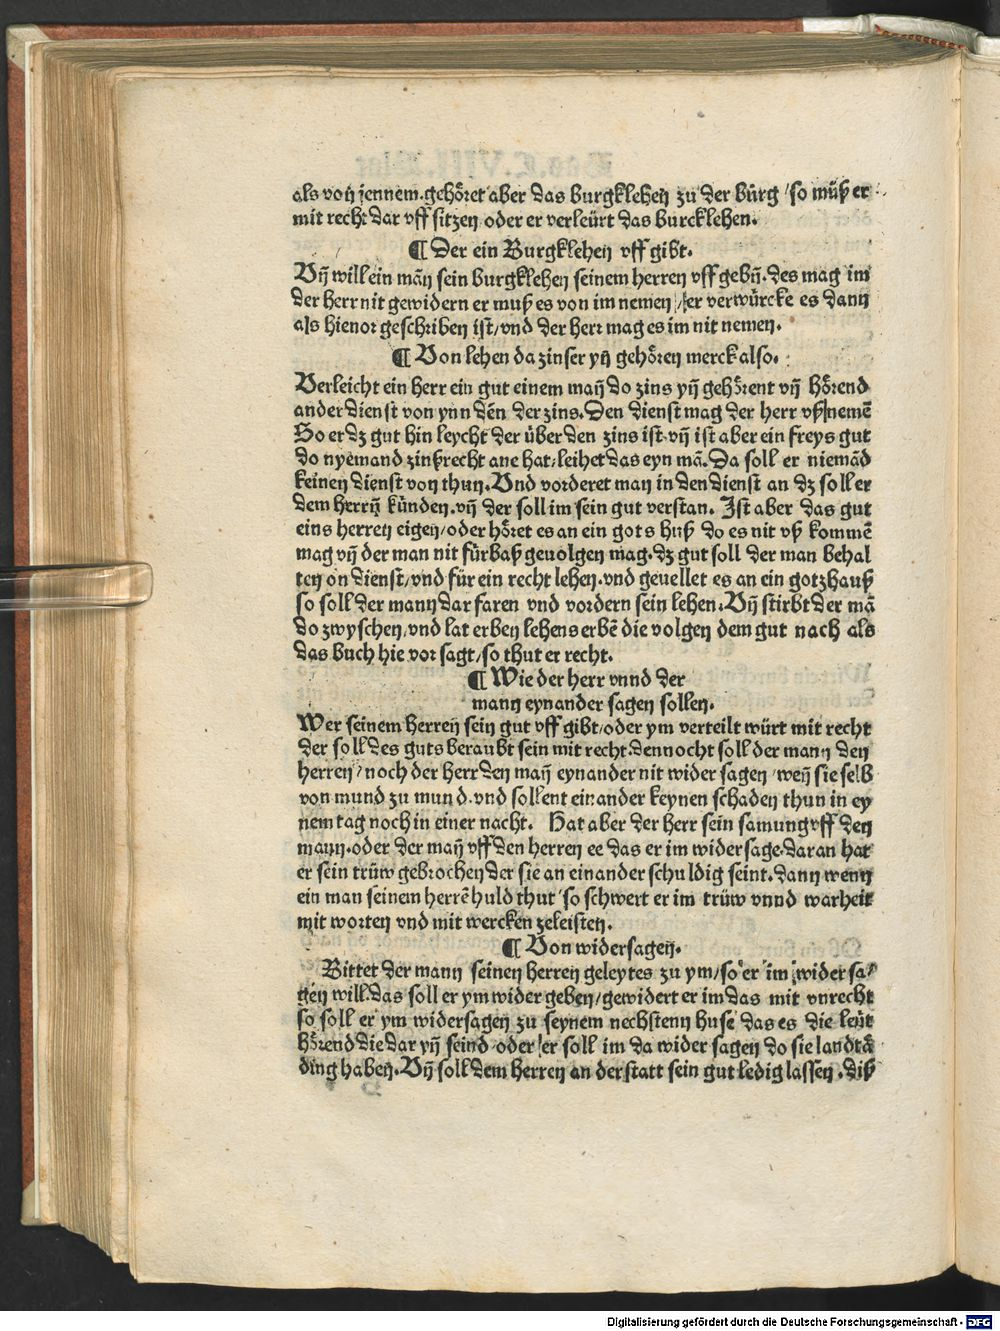 als von jennem. gehöret aber das burgklehen zu der bürg / so müß er
mit recht dar vff sitzen oder er verleürt das burcklehen.
¶ Der ein Burgklehen vff gibt.
Vn̄ will ein mā̄n sein burgklehen seinem herren vff gebn̄. des mag im
der herr nit gewidern er muß es von im nemen / er verwürcke es dann
als hieuor geschriben ist / vnd der herr mag es im nit nemen.
¶ Von lehen da zinser yn̄ gehören merck also.
Verleicht ein herr ein gut einem man̄ do zins yn̄ gehörent vn̄ hörend
ander dienst von ynn den̄ der zins. Den dienst mag der herr vßnemē
So er dz gut hin leycht der über den zins ist. vn̄ ist aber ein freys gut
do nyemand zinßrecht ane hat / leihet das eyn mā. Da soll er niemād
keinen dienst von thun. Vnd vorderet man in den dienst an dz soll er
dem herrn̄ künden. vn̄ der soll im sein gut verstan. Ist aber das gut
eins herren eigen / oder höret es an ein gots huß do es nit vß kommē
mag vn̄ der man nit fürbaß geuolgen mag. dz gut soll der man behal
ten on dienst / vnd für ein recht lehen. vnd geuellet es an ein gotzhauß
so soll der mann dar faren vnd vordern sein lehen. Vn̄ stirbt der mā
do zwyschen / vnd lat er ben lehens erbē die volgen dem gut nach als
das buch hie vor sagt / so thut er recht.
¶ Wie der herr vnnd der
mann eynander sagen sollen.
Wer seinem herren̄ sein gut vff gibt / oder ym verteilt würt mit recht
der soll des guts beraubt sein mit recht. dennocht soll der mann den
herren / noch der herr den man̄ eynander nit wider sagen / wen̄ sie selb
von mund zu mund. vnd sollent einander keynen schaden thun in ey
nem tag noch in einer nacht. Hat aber der herr sein samung vff den
mann. oder der man̄ vff den herren ee das er im widersage. dar an hat
er sein trüw gebrochen der sie an einander schuldig seint. dann wenn
ein man seinem herrē huld thut / so schwert er im trüw vnnd warheit
mit worten vnd mit wercken zeleisten.
¶ Von widersagen.
Bittet der mann seinen herren geleytes zu ym / so er im wider sa /
gen will. das soll er ym wider geben / gewidert er im das mit vnrecht
so soll er ym widersagen zu seynem nechstenn huse das es die leüt
hörend die dar yn̄ seind / oder er soll im da wider sagen do sie landtä
ding haben. Vn̄ soll dem herren an der statt sein gut ledig lassen. diß
Digitalisierung gefördert durch die Deutsche Forschungsgemeinschaft - DFG